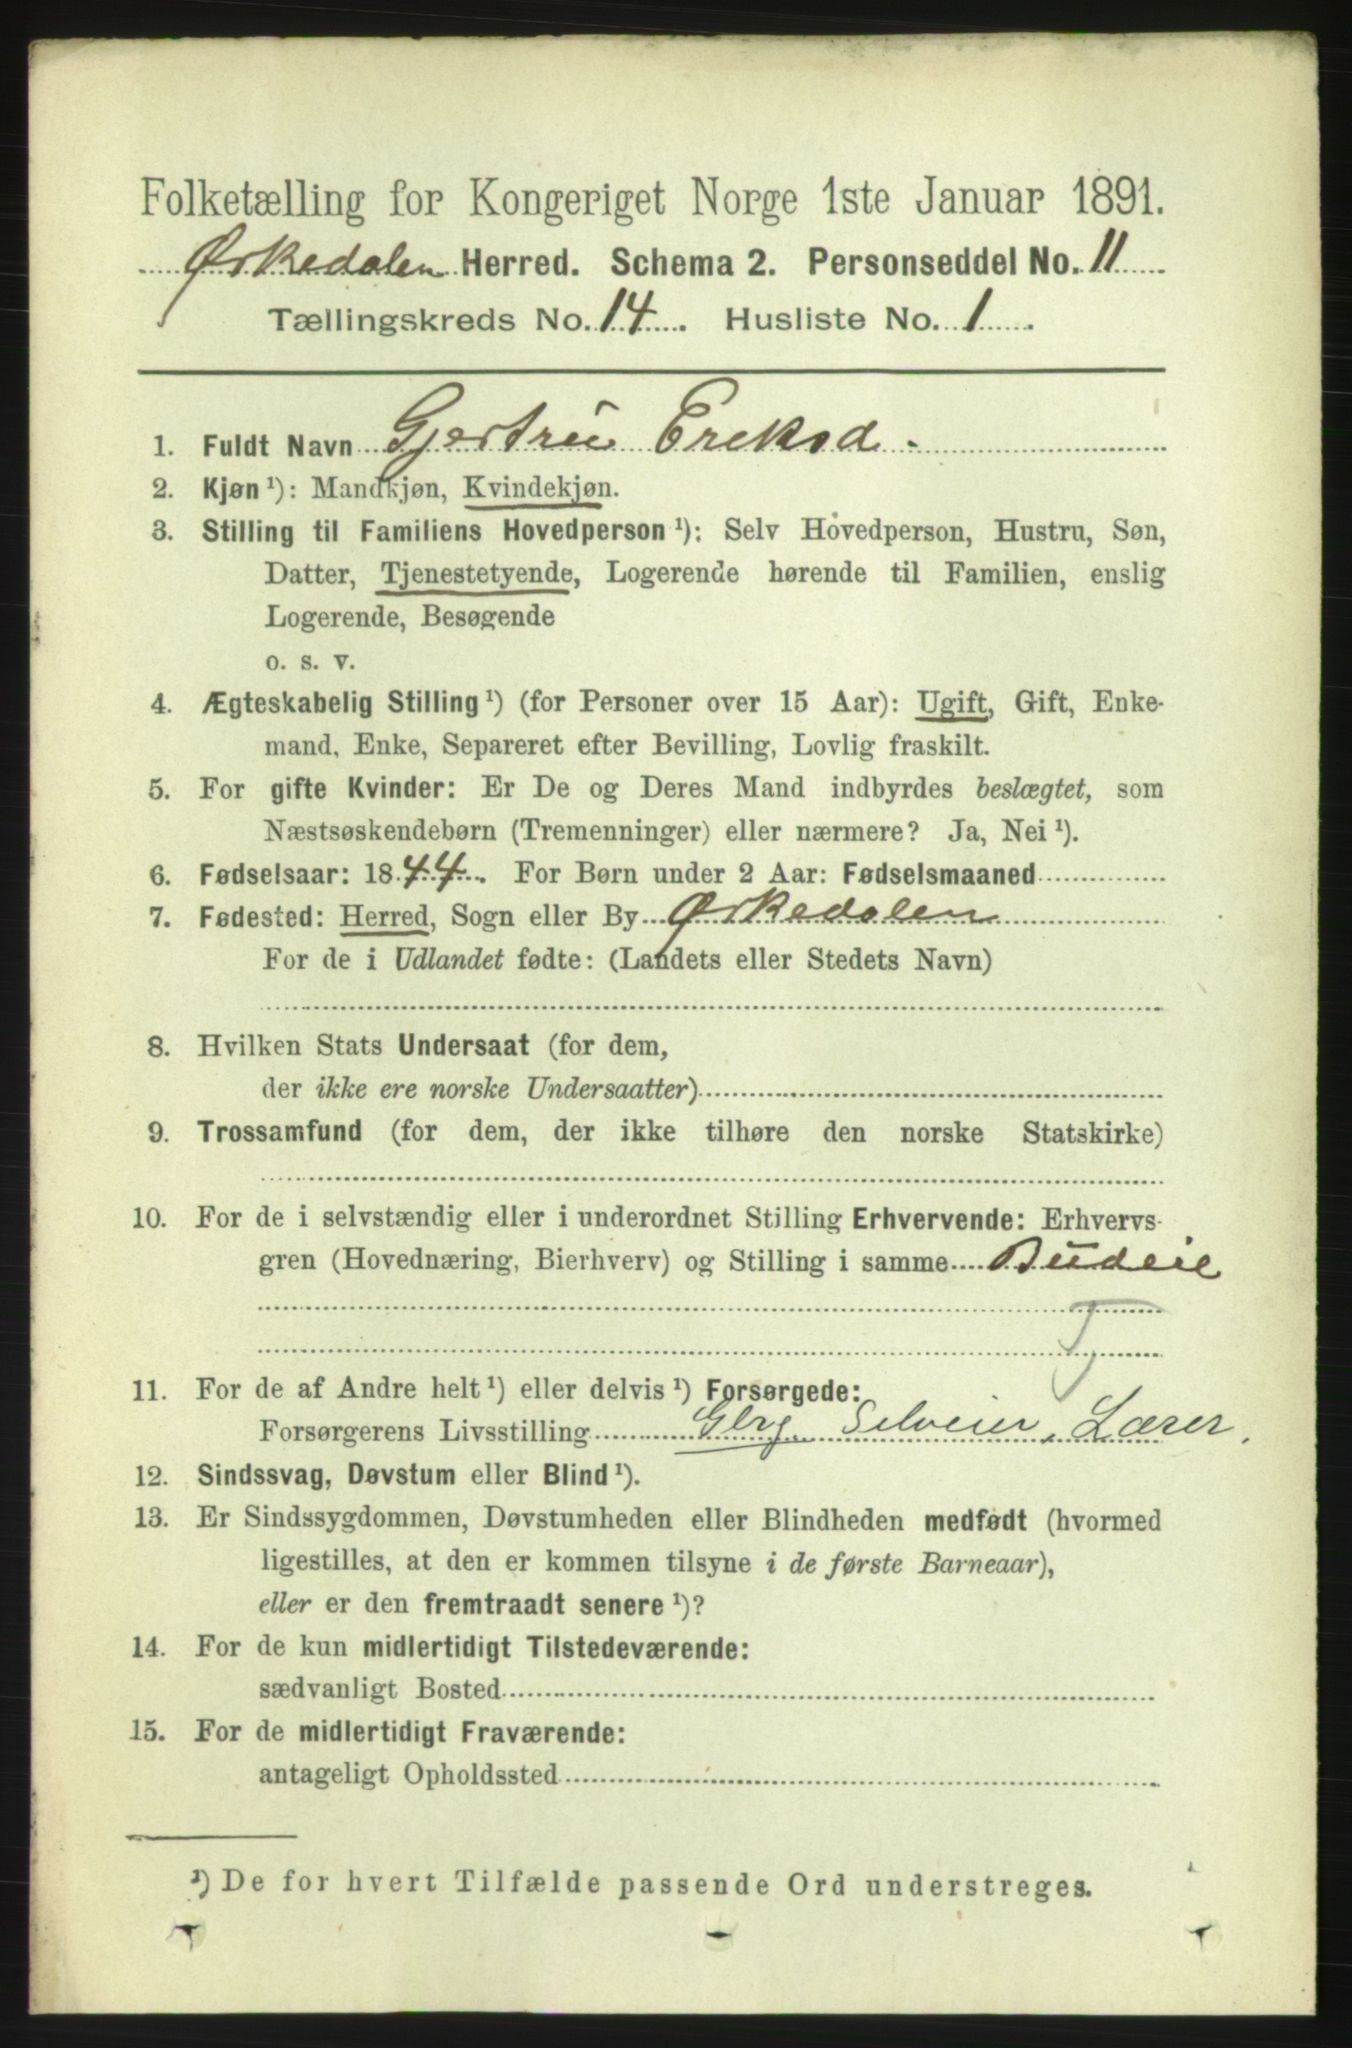 Folketælling for Kongeriget Norge 1ste Januar 1891.
Ørkedalen Herred. Schema 2. Personseddel No. 11
Tællingskreds No. 14. Husliste No. 1
1. Fuldt Navn Gjertru Ereksd.
2. Kjøn ¹): Mandkjøn, Kvindekjøn.
3. Stilling til Familiens Hovedperson ¹): Selv Hovedperson, Hustru, Søn,
Datter, Tjenestetyende, Logerende hørende til Familien, enslig
Logerende, Besøgende
o. s. v.
4. Ægteskabelig Stilling ¹) (for Personer over 15 Aar): Ugift, Gift, Enke-
mand, Enke, Separeret efter Bevilling, Lovlig fraskilt.
5. For gifte Kvinder: Er De og Deres Mand indbyrdes beslægtet, som
Næstsøskendebørn (Tremenninger) eller nærmere? Ja, Nei ¹).
6. Fødselsaar: 1844. For Børn under 2 Aar: Fødselsmaaned
7. Fødested: Herred, Sogn eller By Ørkedalen
For de i Udlandet fødte: (Landets eller Stedets Navn)
8. Hvilken Stats Undersaat (for dem,
der ikke ere norske Undersaatter)
9. Trossamfund (for dem, der ikke tilhøre den norske Statskirke)
10. For de i selvstændig eller i underordnet Stilling Erhvervende: Erhvervs-
gren (Hovednæring, Bierhverv) og Stilling i samme Budeie
T
11. For de af Andre helt ¹) eller delvis ¹) Forsørgede:
Forsørgerens Livsstilling Gbrg. Selveier, Lærer.
12. Sindssvag, Døvstum eller Blind ¹).
13. Er Sindssygdommen, Døvstumheden eller Blindheden medfødt (hvormed
ligestilles, at den er kommen tilsyne i de første Barneaar),
eller er den fremtraadt senere ¹)?
14. For de kun midlertidigt Tilstedeværende:
sædvanligt Bosted
15. For de midlertidigt Fraværende:
antageligt Opholdssted
¹) De for hvert Tilfælde passende Ord understreges.